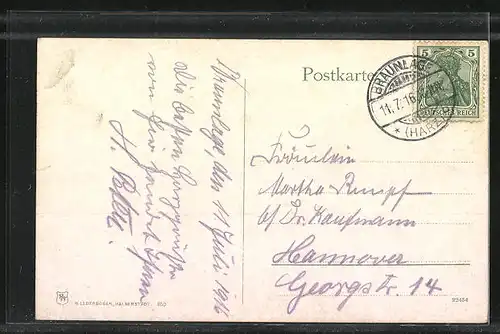 Postkarte
5 5
BRAUNLAGE
11.7.16
* (HARZ)
REICH
Braunlage, den 11 Juli 1916
Die besten Harzgrüße
von hier sendet Ihnen
H.
Fräulein
Martha Rumpf
b/ Dr. Kaufmann
Hannover
Georgstr. 14
LOUIS KOCH, HALBERSTADT
92454